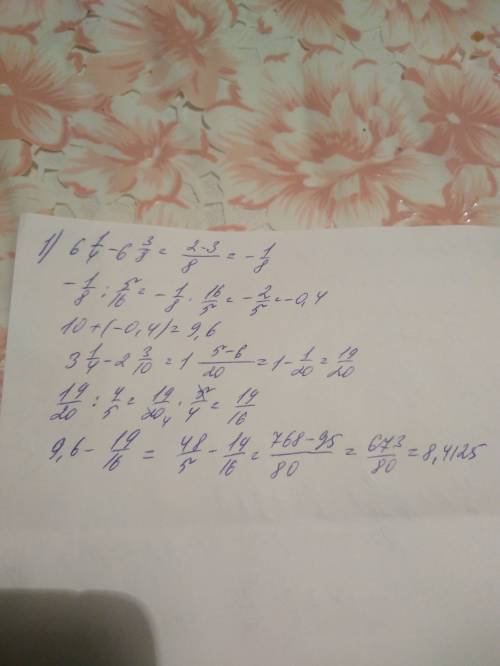 1) 6 1/4 - 6 3/8 = (2-3)/8 = -1/8
-1/8 : 5/16 = -1/8 · 16/5 = -2/5 = -0,4
10 + (-0,4) = 9,6
3 1/4 - 2 3/10 = 1 (5-6)/20 = 1 - 1/20 = 19/20
19/20 : 4/5 = 19/20 4 · 5/4 = 19/16
9,6 - 19/16 = 48/5 - 19/16 = (768-95)/80 = 673/80 = 8,4125